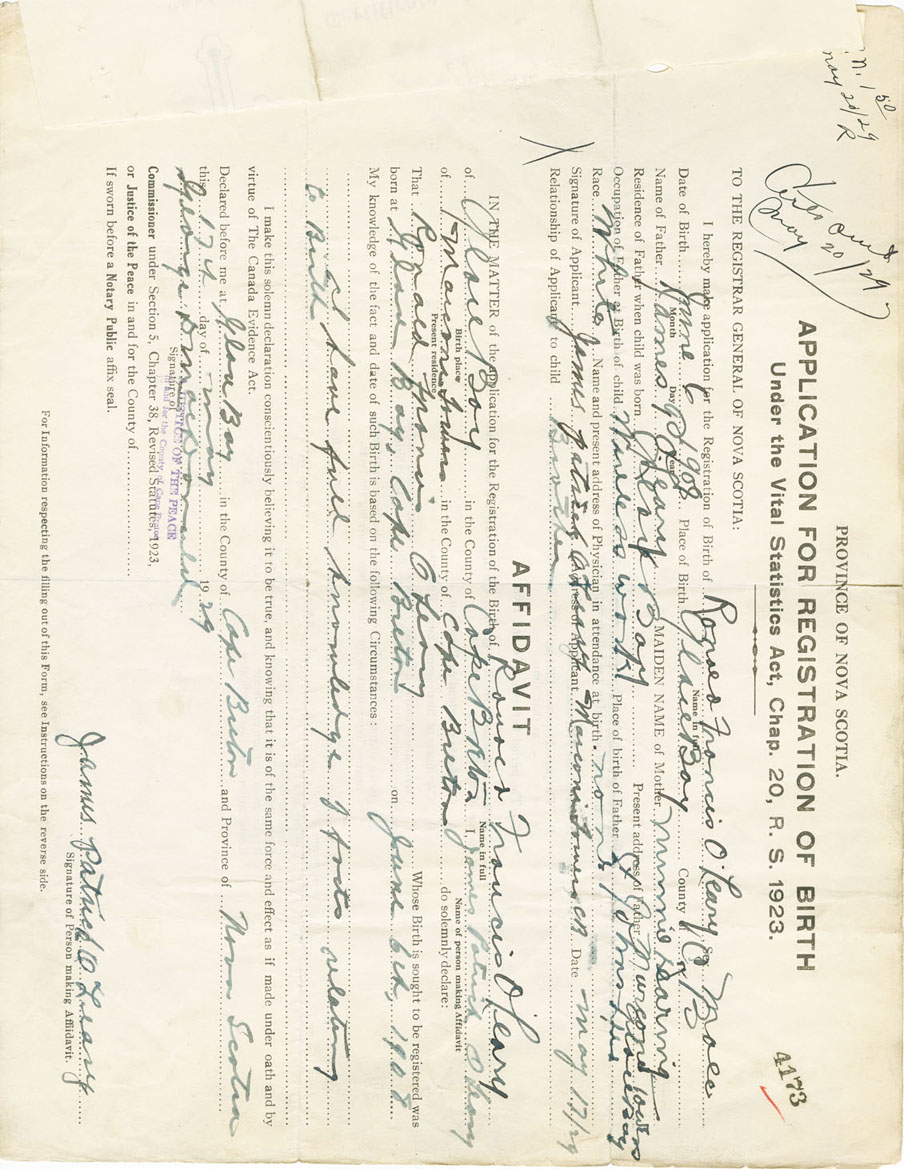 N. 1 50
May 20/29
R
PROVINCE OF NOVA SCOTIA.
APPLICATION FOR REGISTRATION OF BIRTH
Under the Vital Statistics Act, Chap. 20, R. S. 1923.
4173
May 20/29
TO THE REGISTRAR GENERAL OF NOVA SCOTIA:
I hereby make application for the Registration of Birth of Ronald Francis O'Leary Sex Male
Name in full
Date of Birth June 6 1908 Place of Birth Glace Bay County C B
Month Day Year
Name of Father James P O'Leary MAIDEN NAME of Mother Minnie
Residence of Father when child was born Glace Bay Present address of Father Marconi Towers
Occupation of Father at Birth of child Wireless work Place of birth of Father
Race White Name and present address of Physician in attendance at birth
Signature of Applicant James Patrick O'Leary Address of Applicant Marconi Towers CB Date May 17/29
Relationship of Applicant to child Brother
AFFIDAVIT
IN THE MATTER of the Application for the Registration of the Birth of Ronald Francis O'Leary
Name in full
of Glace Bay in the County of Cape Breton I, James Patrick O'Leary
Birth place Name of person making Affidavit
of Marconi Towers in the County of Cape Breton do solemnly declare:
Present residence
That Ronald Francis O'Leary Whose Birth is sought to be registered was
born at Glace Bay, Cape Breton on June 6th, 1908
My knowledge of the fact and date of such Birth is based on the following Circumstances:
I have full knowledge of facts relating
to Birth
I make this solemn declaration conscientiously believing it to be true, and knowing that it is of the same force and effect as if made under oath and by
virtue of The Canada Evidence Act.
Declared before me at Glace Bay in the County of Cape Breton and Province of Nova Scotia
this 17th day of May 1929
Signature of
JUSTICE OF THE PEACE
in and for the County of Cape Breton
Commissioner under Section 5, Chapter 38, Revised Statutes, 1923,
or Justice of the Peace in and for the County of
If sworn before a Notary Public affix seal.
James Patrick O'Leary
Signature of Person making Affidavit.
For Information respecting the filling out of this Form, see Instructions on the reverse side.